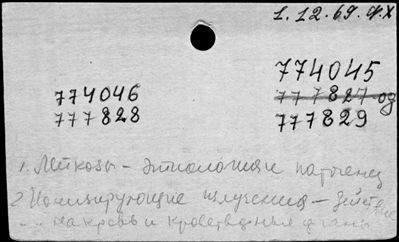 1.12.69. ф.х
774046
777828
774045
777827 од
777829
1. Лейкозы - этиология и патогенез
2. Ионизирующие излучения - действие
на кровь и кроветворные органы